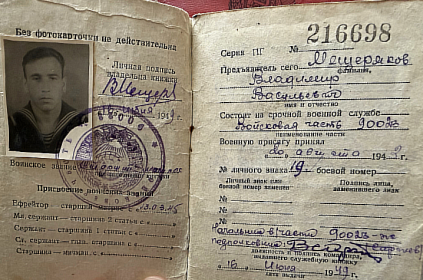 Без фотокарточки не действительна
Личная подпись
владельца книжки
ВМещер
1949 г.
Воинское звание
Присвоение воинских званий:
Ефрейтор - старший
Мл. сержант — старшина 2 статьи с
Сержант — старшина 1 статьи с
Ст. сержант — гл. старшина с
Старшина — мичман. с
216698
Серия ПГ №
Предъявитель сего Мещеряков
фамилия,
Владимир
Васильевич
имя и отчество
Состоит на срочной военной службе
Войсковая часть 90023
наименование части
Военную присягу принял
20 августа 194 г.
№ личного знака 19 боевой номер
Личный знак или боевой номер заменен
Подпись лица, заменившего знак
Начальник в/части 90023-"ж"
подполковник
должность и подпись командира,
выдавшего служебную книжку
Июня 1949 г.